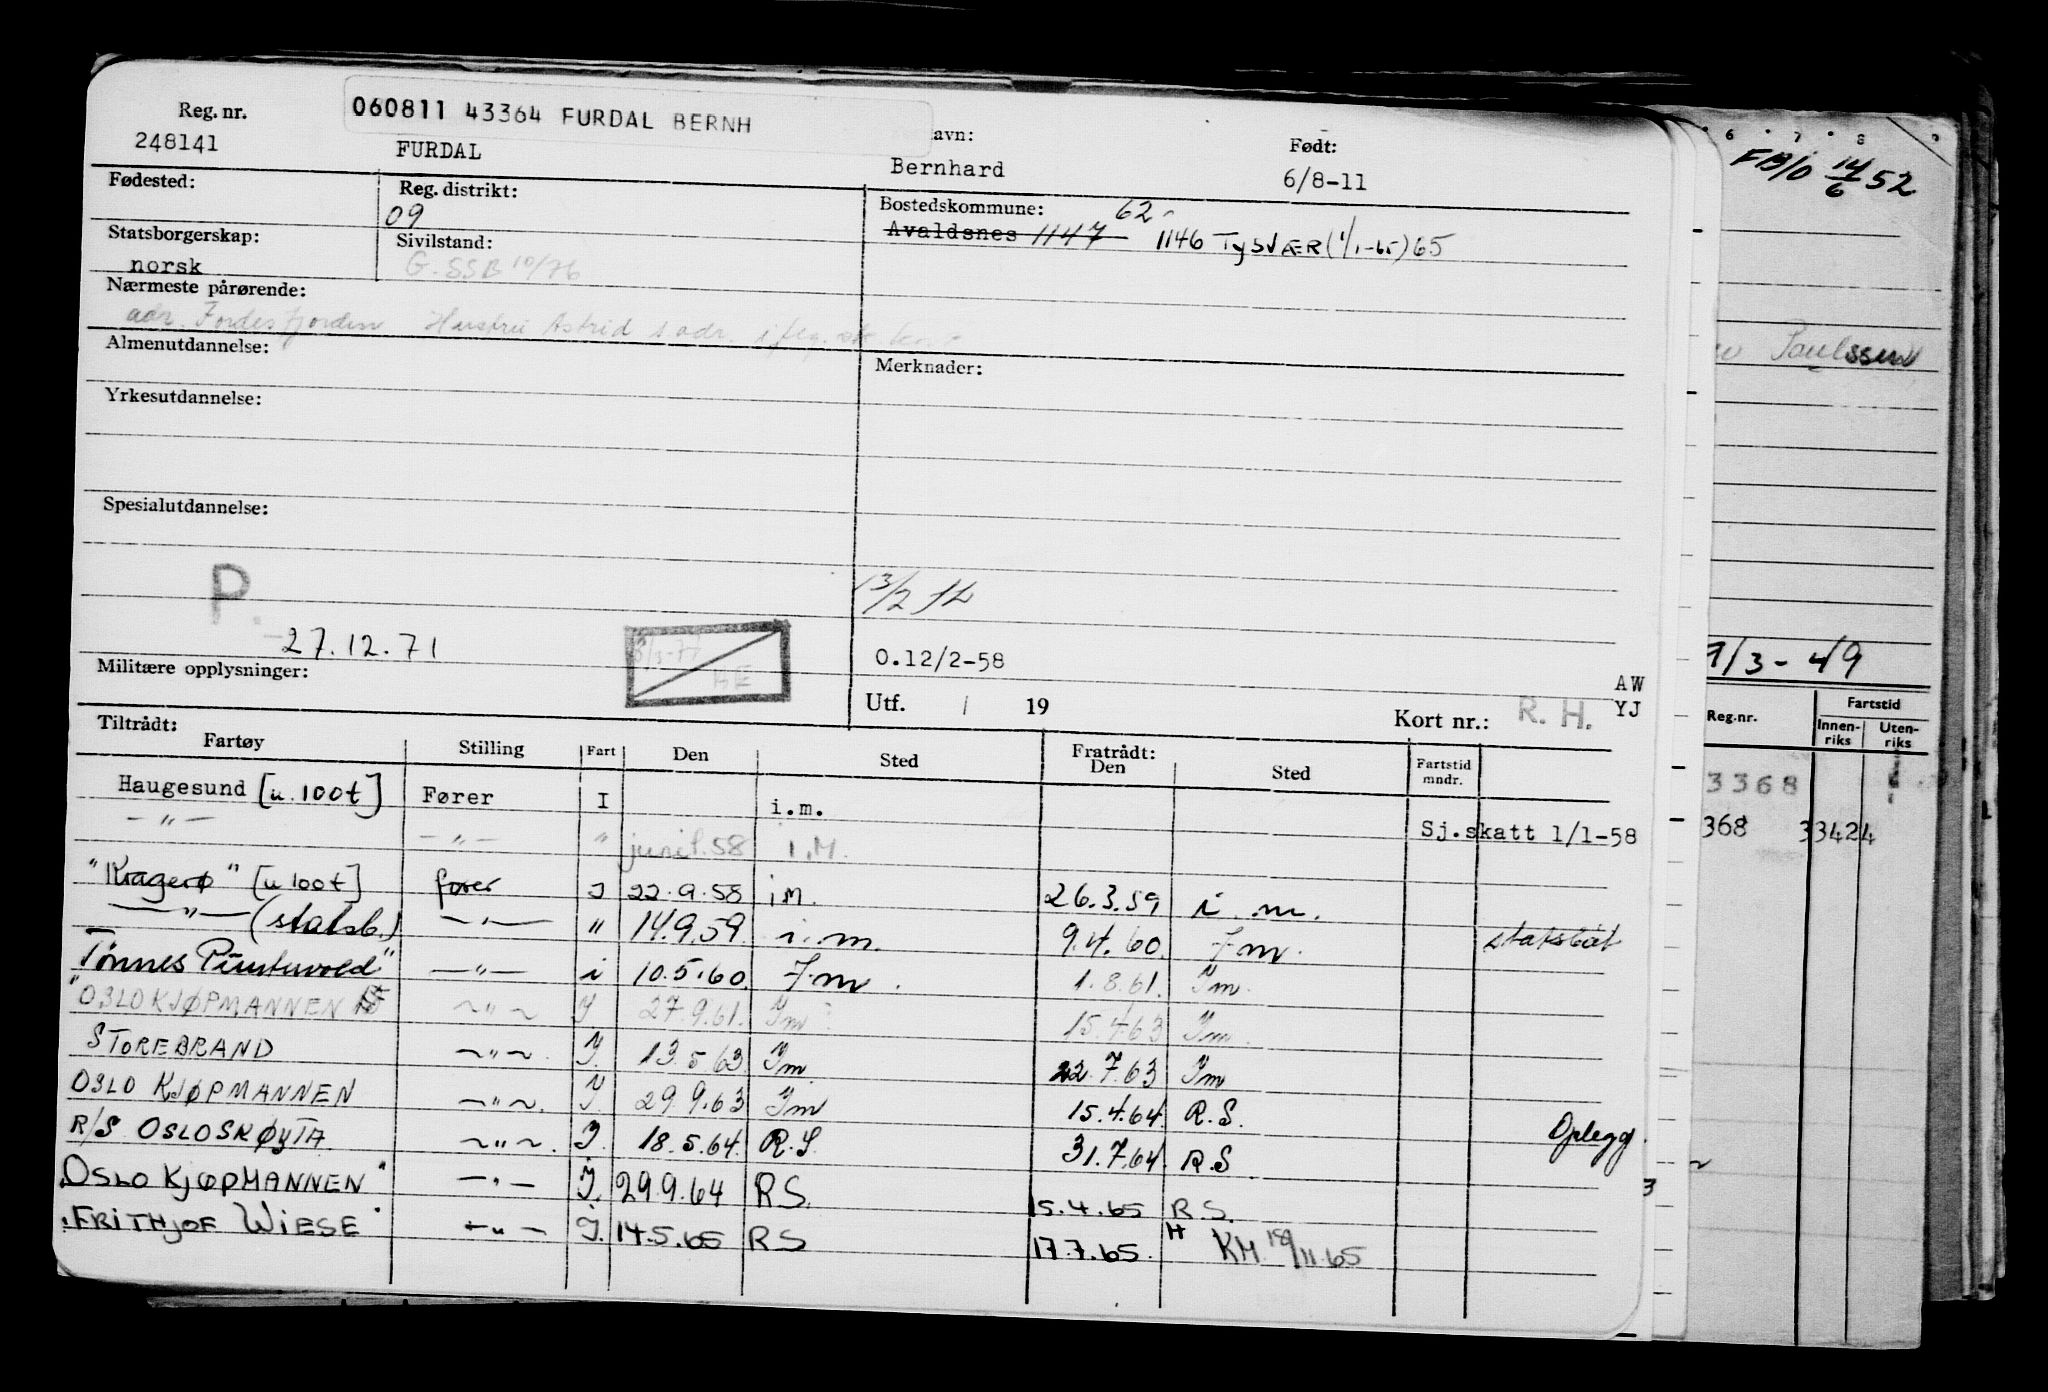 060811 43364 FURDAL BERNH
Reg. nr.
248141
FURDAL
avn:
Bernhard
Født:
6/8-11
Fødested:
Reg. distrikt:
09
Bostedskommune:
62-
Avaldsnes 1147 1146 TYSVÆR (1/1-65) 65
Statsborgerskap:
norsk
Sivilstand:
G. SSB 10/76
Nærmeste pårørende:
adr. Førdesfjorden Hustru Astrid s adr. iflg.
Almenutdannelse:
Merknader:
Yrkesutdannelse:
Spesialutdannelse:
P.
-27.12.71
13/2
O.12/2-58
Militære opplysninger:
Utf. / 19
Kort nr.: R. H.
AW
YJ
Tiltrådt:
Fartøy Stilling Fart Den Sted Fratrådt: Den Sted Fartstid mndr.
Haugesund [u.100t] Fører I i.m.
-"- -"- " juni 58 i.M. Sj.skatt 1/1-58
"Kragerø" [u 100t] fører I 22.9.58 i M. 26.3.59 i.m.
-"- (statsb.) -"- " 14.9.59 i.m. 9.4.60 I m. statsbåt
Tønnes Puntervold" -"- i 10.5.60 I m. 1.8.61. Im.
"OSLO KJØPMANNEN -"- I 27.9.61. Im 15.4.63 Im.
STOREBRAND -"-. I. 13.5.63 Im. 22.7.63 Im
OSLO KJØPMANNEN -"-. I. 29.9.63 Im 15.4.64. R.S.
R/S OSLOSKØYTA -"-. I. 18.5.64. R.S. 31.7.64. R.S Oplegg.
"OSLO KJØPMANNEN" -"- I. 29.9.64 RS. 15.4.65 R.S.
"FRITHJOF WIESE" -"- I. 14.5.65 RS 17.7.65. H KM. 189/11.65
6 7 8 9
FB/O 14/6 52
Paulssen
1/3-49
Reg.nr.
Fartstid
Innen-riks Uten-riks
3368
368 33424
3